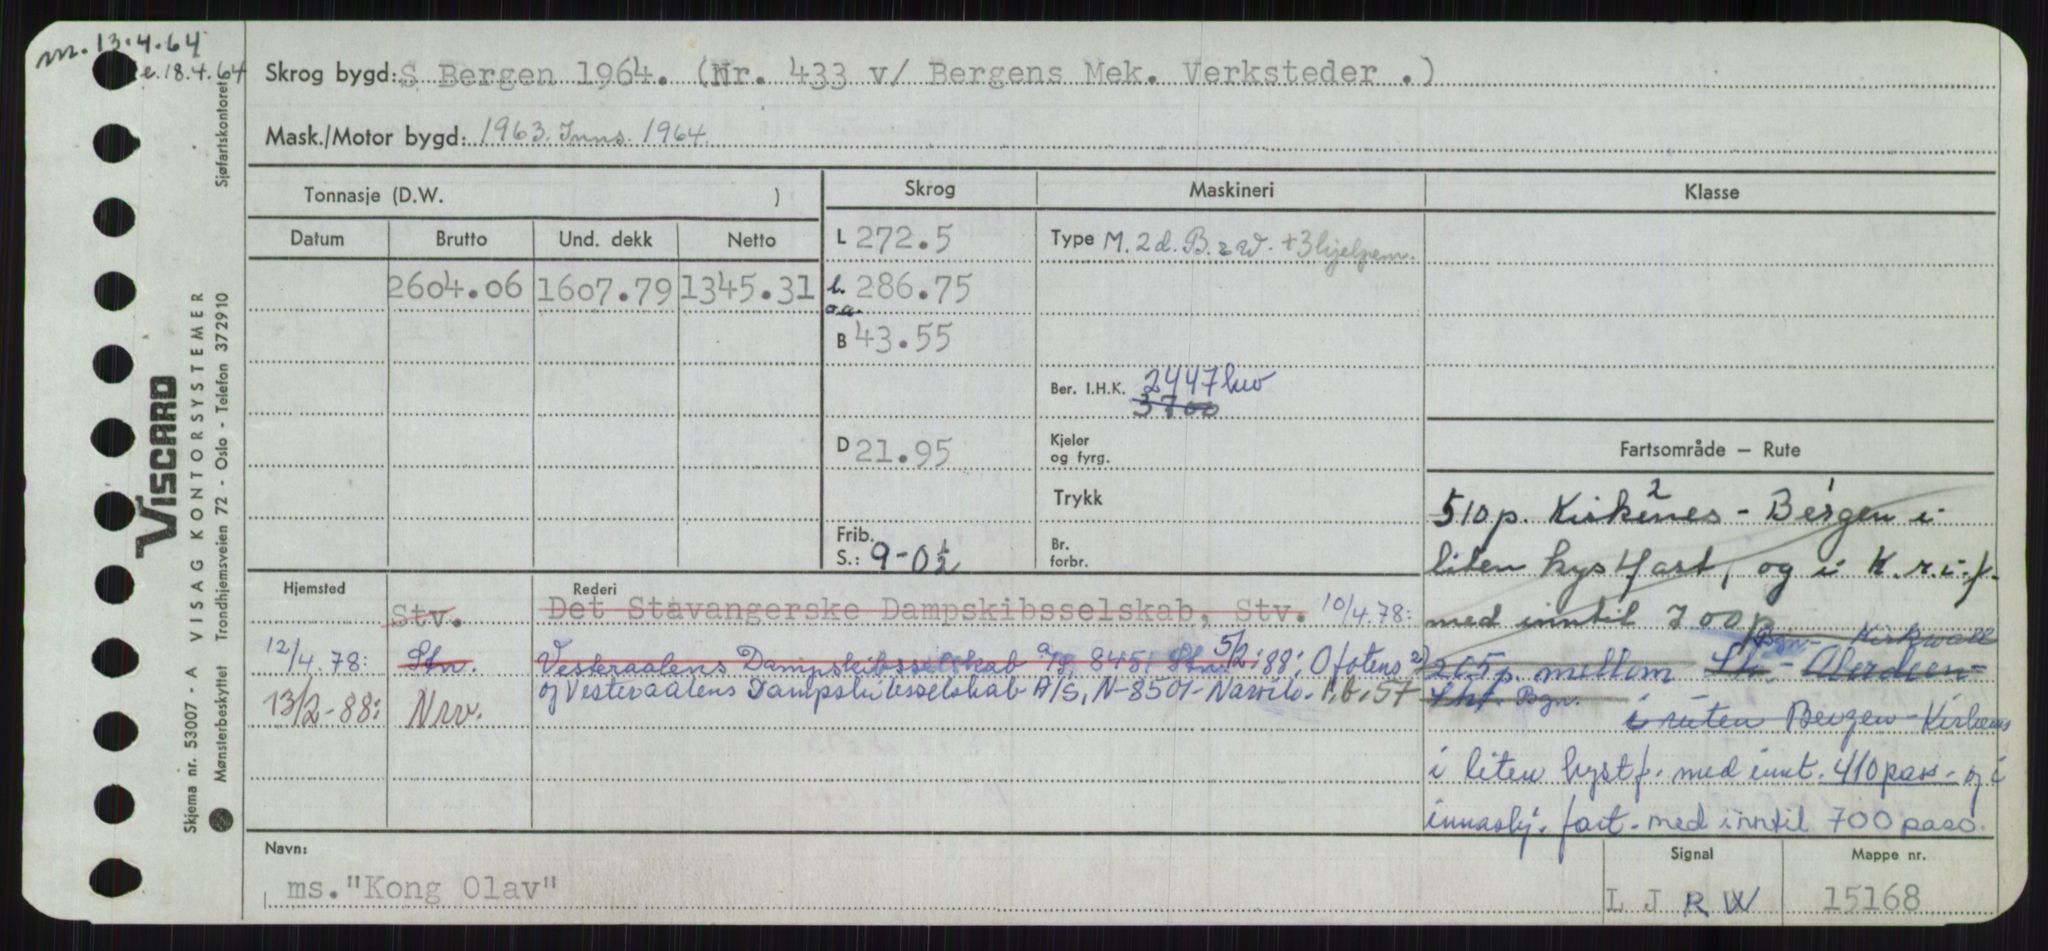 m. 13.4.64
e. 18.4.64
Skrog bygd: S Bergen 1964. (Nr. 433 v/ Bergens Mek. Verksteder .)
Mask./Motor bygd: 1963. Inns. 1964.
Sjøfartskontoret
VISCARD
VISAG KONTORSYSTEMER
Skjema nr. 53007 - A
Mønsterbeskyttet Trondhjemsveien 72 - Oslo - Telefon 372910
Tonnasje (D.W. )
Skrog
Maskineri
Klasse
Datum
Brutto
Und. dekk
Netto
2604.06
1607.79
1345.31
L 272.5
l. oa. 286.75
B 43.55
D 21.95
Frib. S.: 9-0½
Type M. 2 d. B & W. + 3 hjelpem.
Ber. I.H.K. 2447 kw
3700
Kjeler og fyrg.
Trykk
Br. forbr.
Fartsområde — Rute
2 1
510 p. Kirkenes - Bergen i
liten kystfart, og i K.r.i.f.
med inntil 700 p
Bgn - Kirkwall
2) 265 p. mellom - Aberdeen -
Bgn.
i ruten Bergen - Kirkenes
i liten kystf. med innt. 410 pass. og i
innaskj. fart. med inntil 700 pass.
Hjemsted
Rederi
Stv.
Det Stavangerske Dampskibsselskab, Stv. 10/4.78:
12/4.78: Stn.
Vesteraalens Dampskibsselskab a/s, 8451 Stn. 5/2-88: Ofotens
13/2-88: Nrv.
og Vesteraalens Dampskibsselskab A/S, N-8501 - Narvik. P.b. 57
Navn:
ms. "Kong Olav"
Signal
L J R W
Mappe nr.
15168